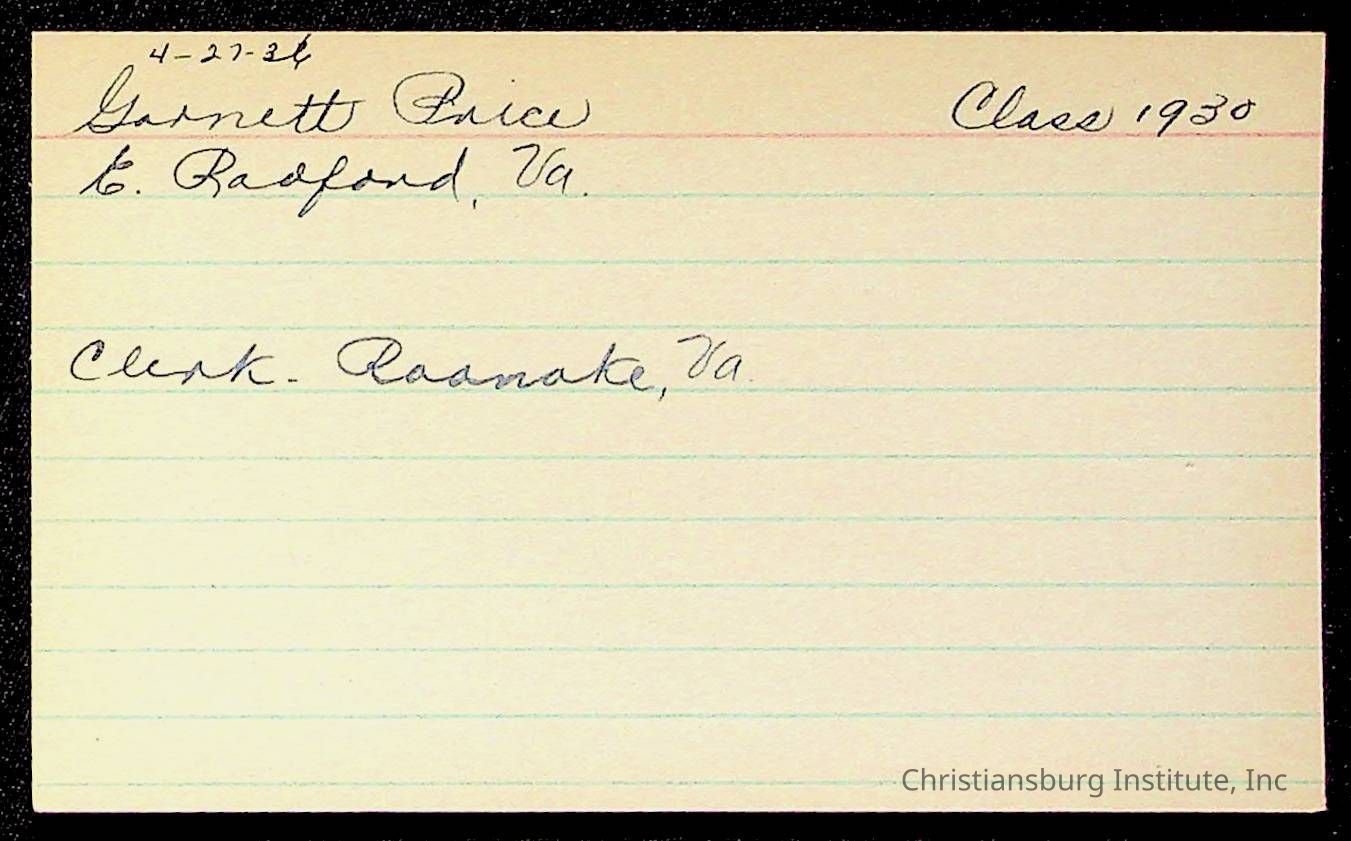 4-27-36
Garnett Price Class 1930
E. Radford, Va.
Clerk - Roanoke, Va.
Christiansburg Institute, Inc